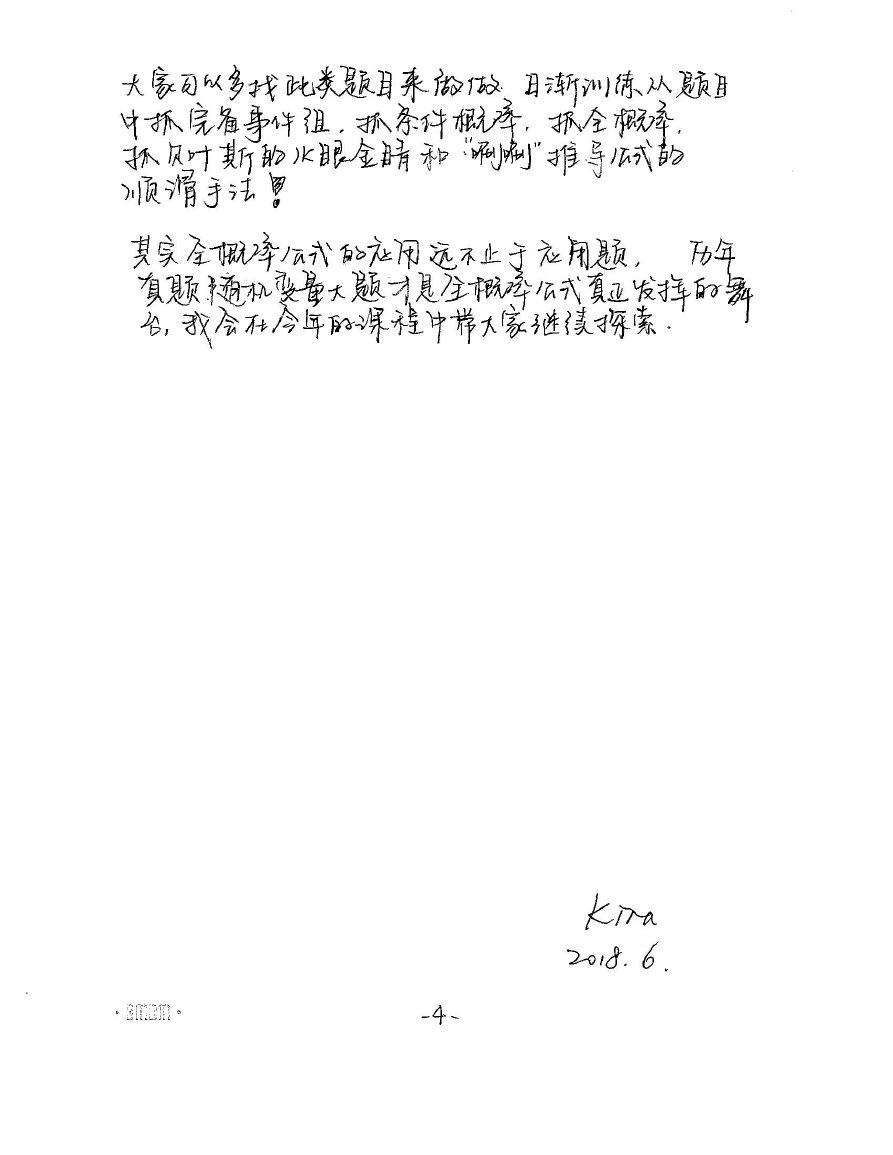 大家可以多找此类题目来做做 日渐训练从题目
中抓完备事件组，抓条件概率，抓全概率，
抓贝叶斯的火眼金睛和“唰唰”推导公式的
顺滑手法！
其实全概率公式的应用远不止于应用题， 历年
真题随机变量大题才是全概率公式真正发挥的舞
台，我会在今年的课程中带大家继续探索.
Kira
2018.6.
-4-